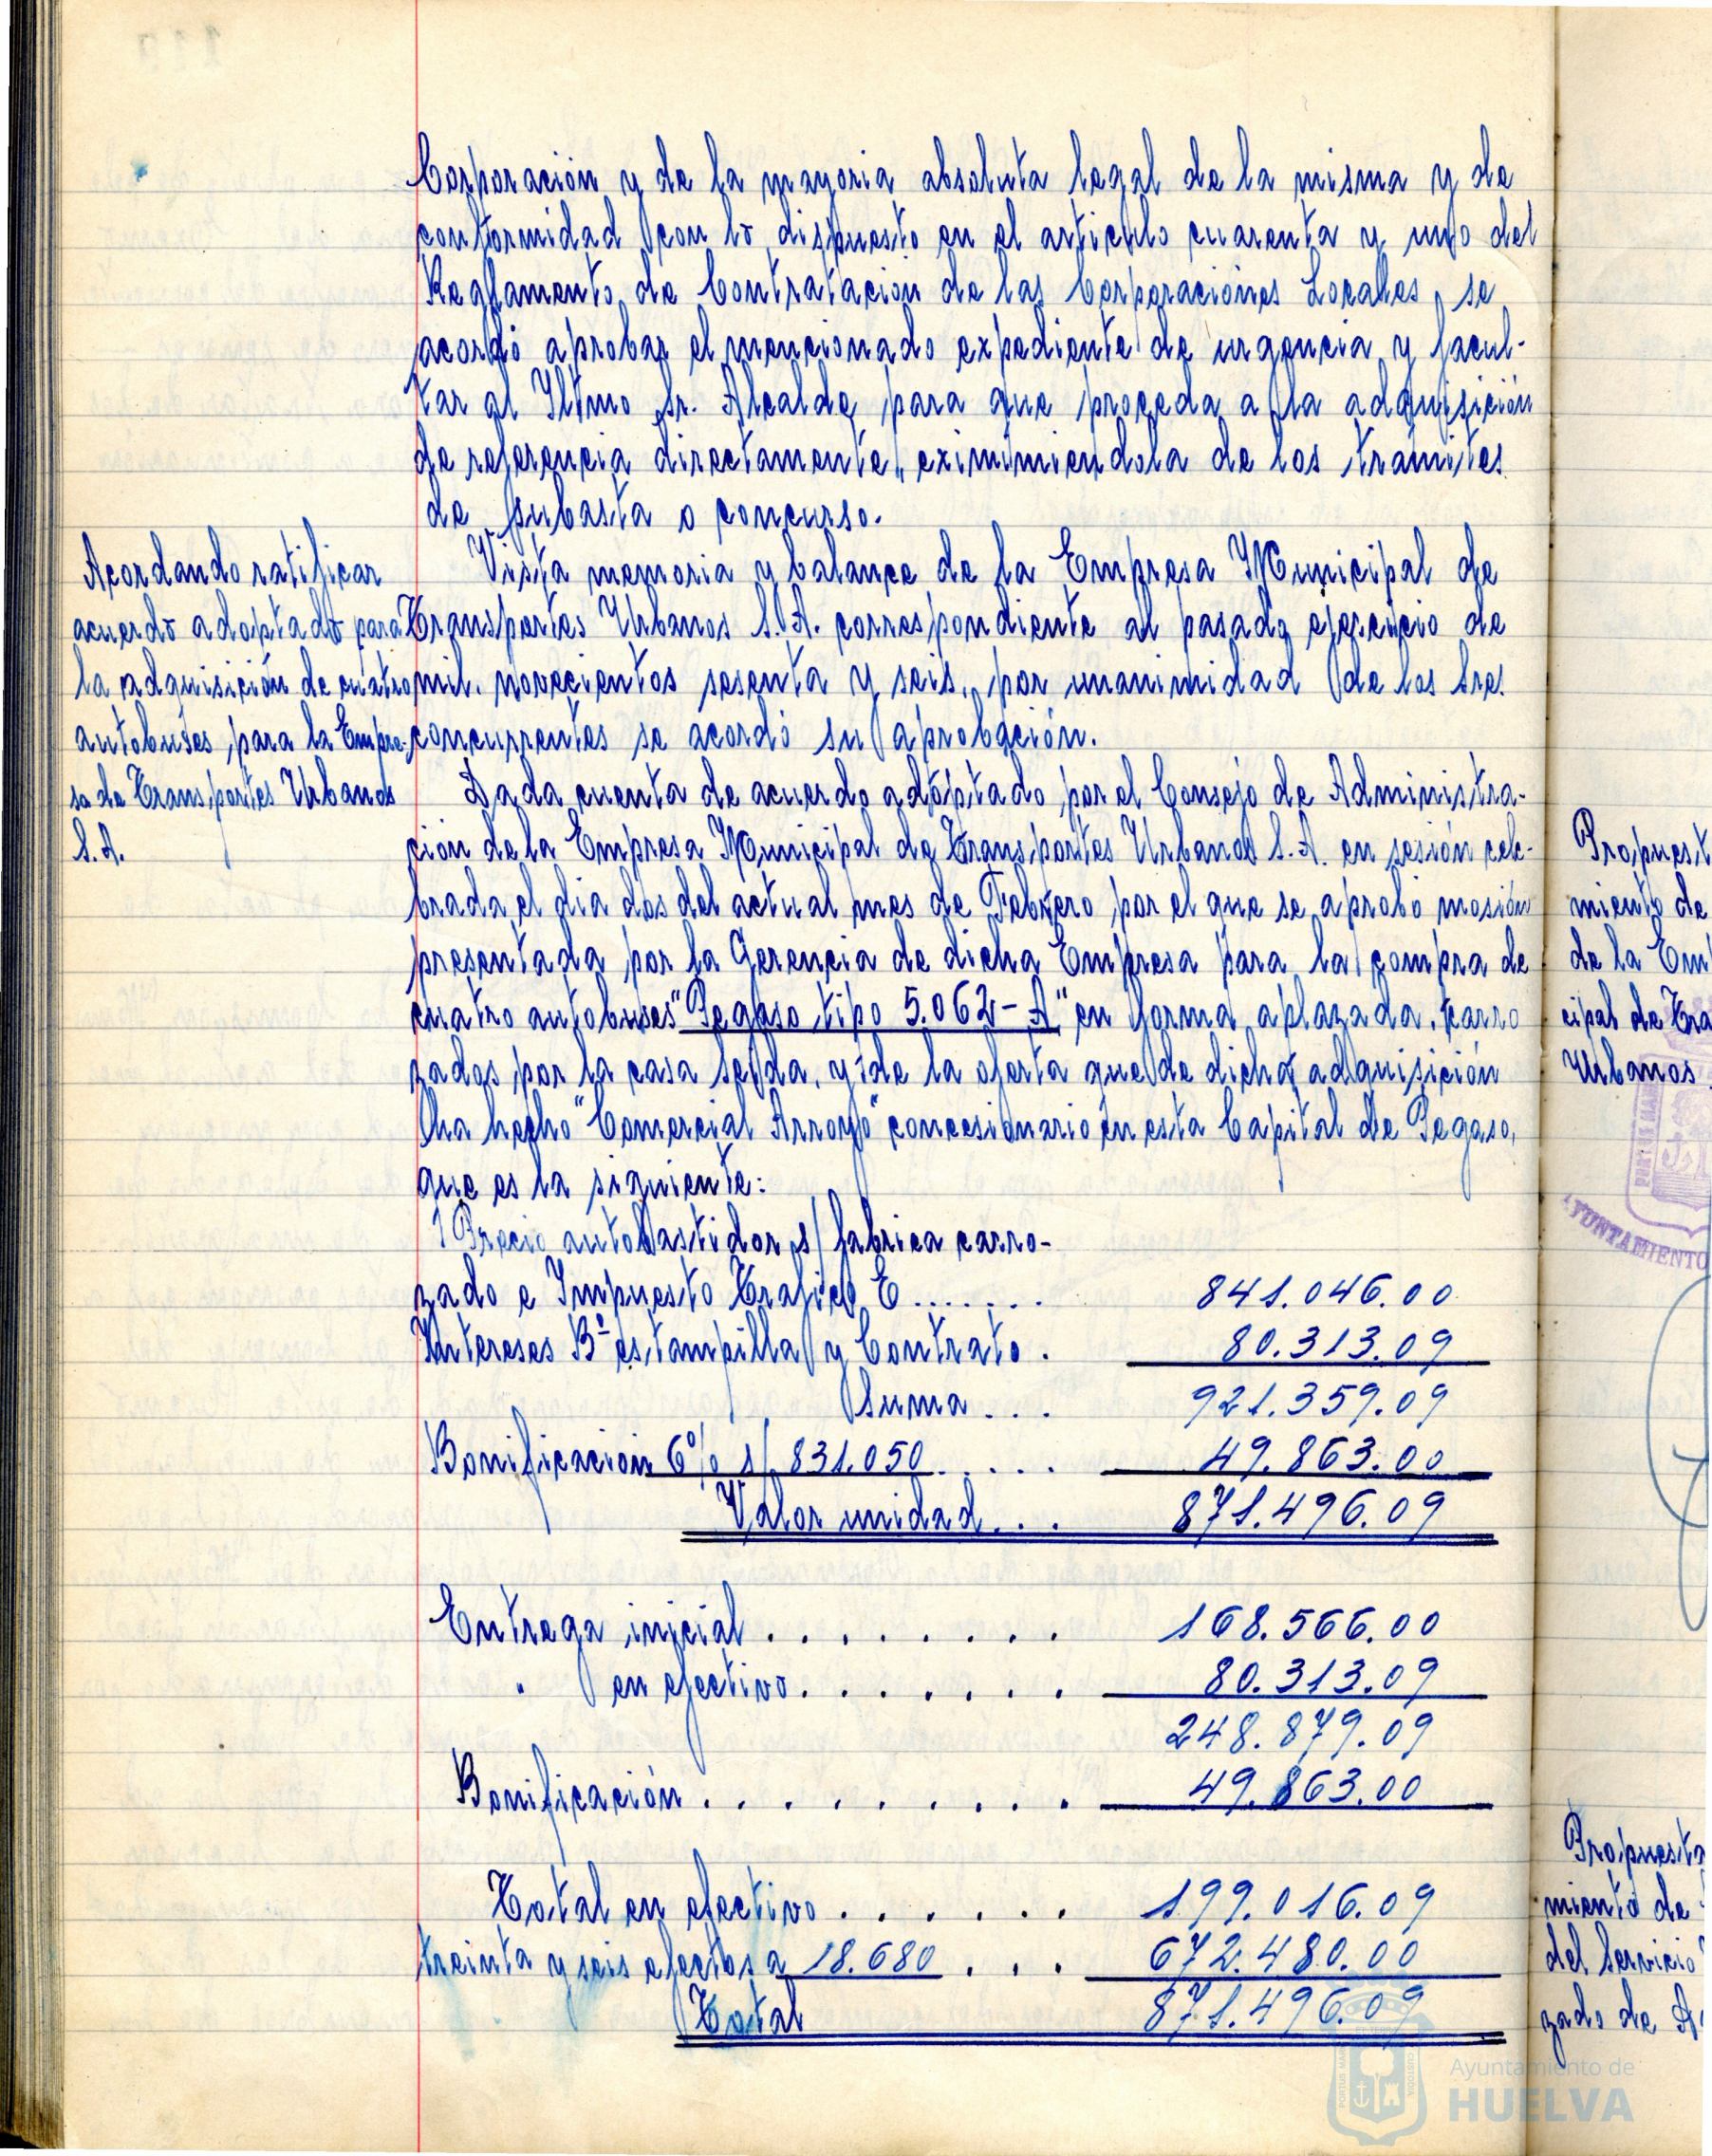 Corporación y de la mayoria absoluta legal de la misma y de
conformidad con lo dispuesto en el articulo cuarenta y uno del
Reglamento de Contratación de las Corporaciones Locales, se
acordó aprobar el mencionado expediente de urgencia y facul-
tar al Iltmo Sr. Alcalde para que proceda a la adquisición
de referencia directamente, eximimiendola de los trámites
de subasta o concurso.
Acordando ratificar
acuerdo adoptado para
la adquisición de cuatro
autobuses para la Empre-
sa de Transportes Urbanos
S.A.
Vista memoria y balance de la Empresa Municipal de
Transportes Urbanos S.A. correspondiente al pasado ejercicio de
mil novecientos sesenta y seis, por unanimidad de los Sres.
concurrentes se acordó su aprobación.
Dada cuenta de acuerdo adoptado por el Consejo de Administra-
ción de la Empresa Municipal de Transportes Urbanos S.A. en sesión cele-
brada el dia dos del actual mes de Febrero por el que se aprobó mosión
presentada por la Gerencia de dicha Empresa para la compra de
cuatro autobuses "Pegaso tipo 5.062-A" en forma aplazada, carro
zados por la casa Seida, y de la oferta que de dicha adquisición
ha hecho "Comercial Arroyo" concesionario en esta Capital de Pegaso,
que es la siguiente:
1 Precio autobastidor s/ fabrica carro-
zado e Impuesto Trafico E ....... 841.046.00
Intereses Bº estampilla y Contrato . 80.313.09
Suma ... 921.359.09
Bonificación 6% s/ 831.050 ..... 49.863.00
Valor unidad ... 871.496.09
Entrega inicial ........ 168.566.00
" en efectivo ....... 80.313.09
248.879.09
Bonificación ......... 49.863.00
Total en efectivo ...... 199.016.09
treinta y seis efectos a 18.680 ... 672.480.00
Total 871.496.09
Propuest
miento de
de la Em
cipal de Tra
Urbanos
AYUNTAMIENTO
Propuesta
miento de
del Servicio
zado de A
Ayuntamiento de
HUELVA